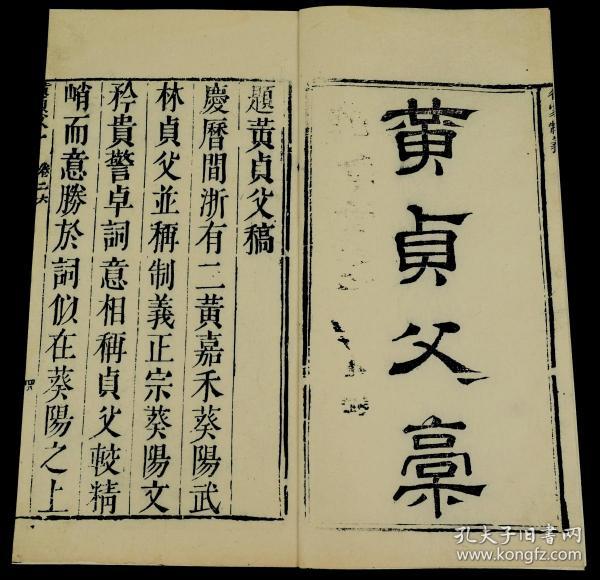 黄貞父稾
題黄貞父稿
慶曆間浙有二黄嘉禾葵陽武
林貞父並稱制義正宗葵陽文
矜貴警卓詞意相稱貞父較精
峭而意勝於詞似在葵陽之上
孔夫子旧书网
www.kongfz.com